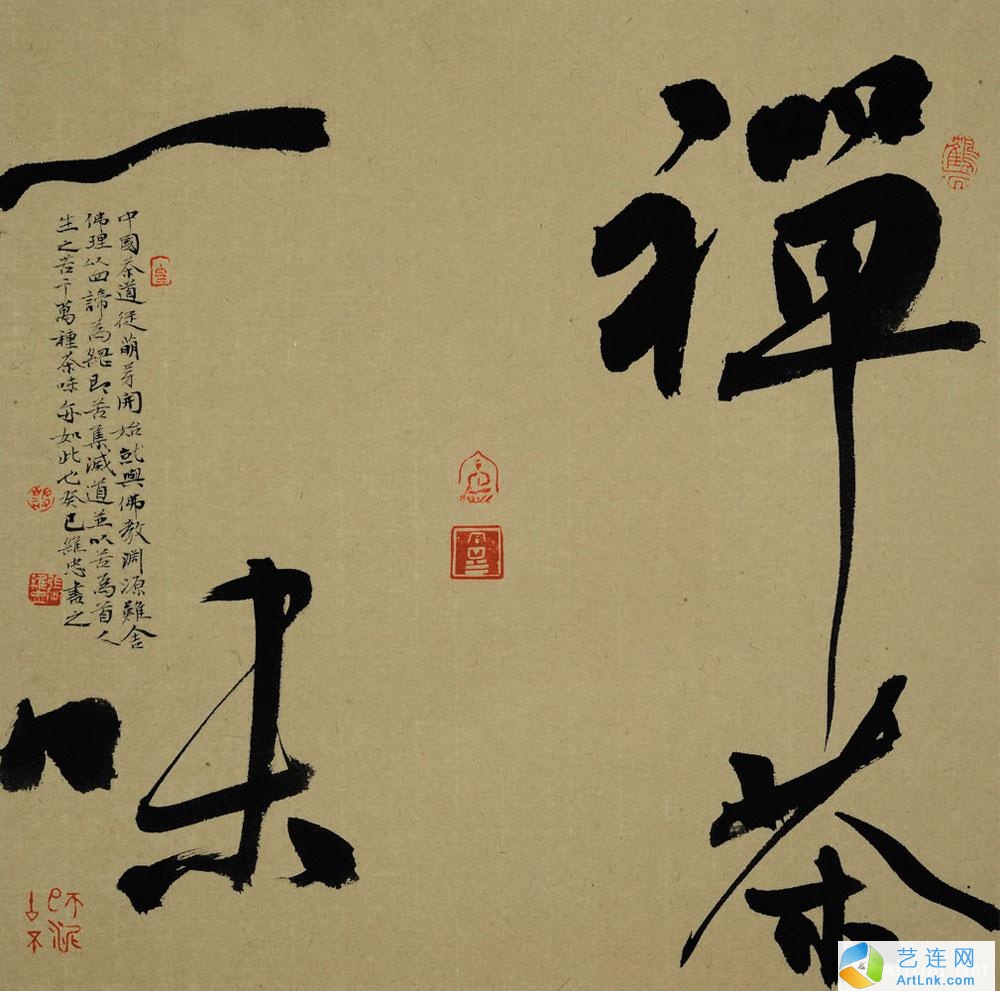 禪茶
一味
中國茶道從萌芽開始就與佛教淵源難舍
佛理以四諦為總即苦集滅道並以苦為首人
生之苦千萬種茶味亦如此也癸巳維忠書之
艺连网
ArtLnk.com